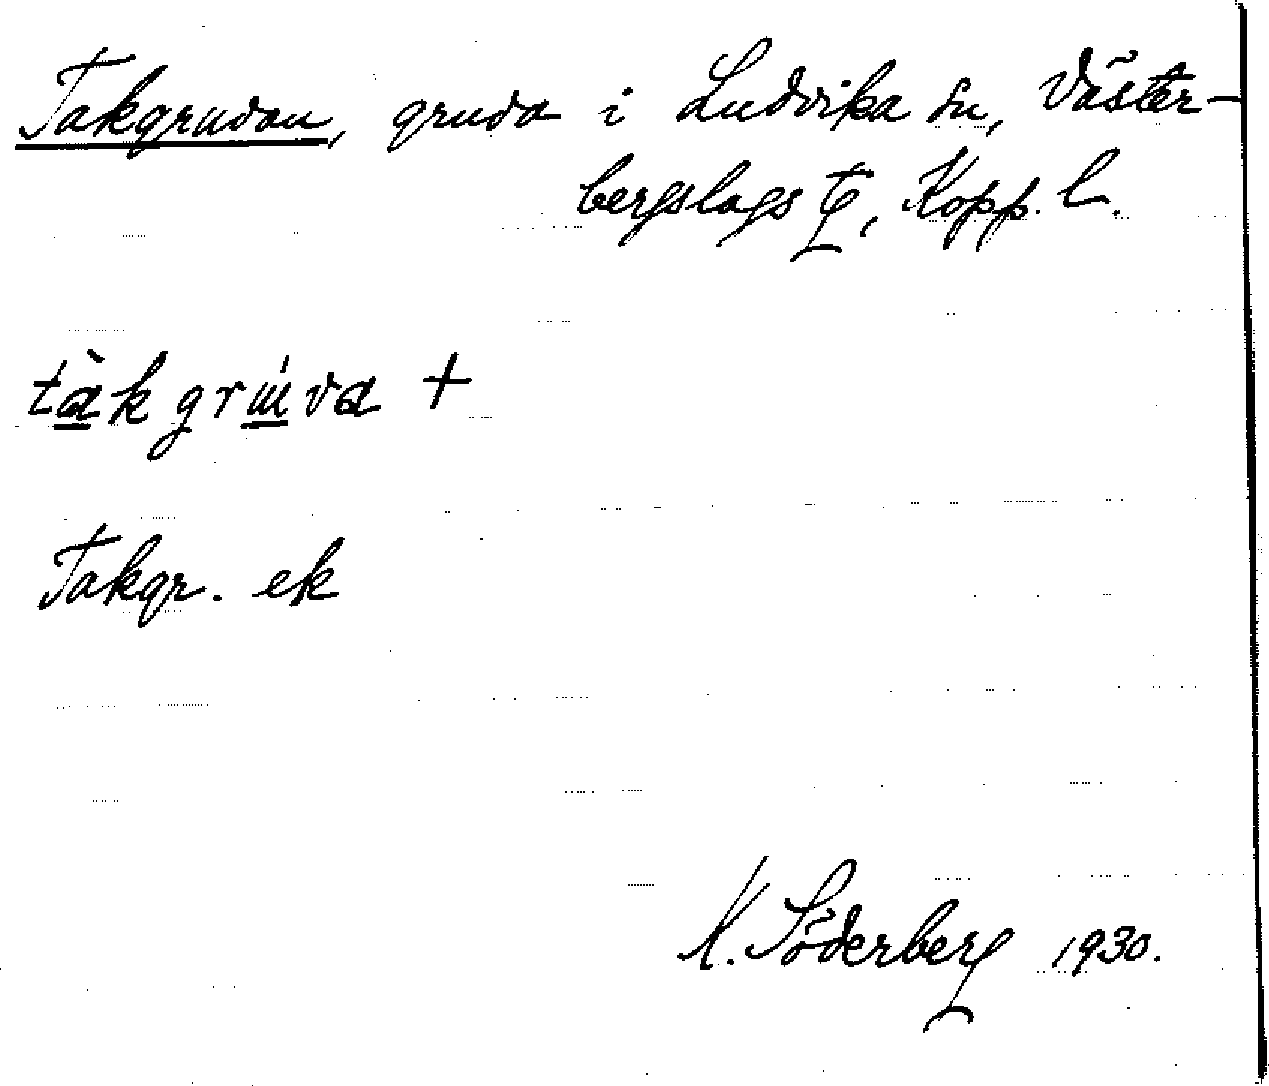 Takgruvan, gruva i Ludvika sn, Väster-
bergslags tg, Kopp. l.
tàkgrúva +
Takgr. ek
K. Söderberg 1930.